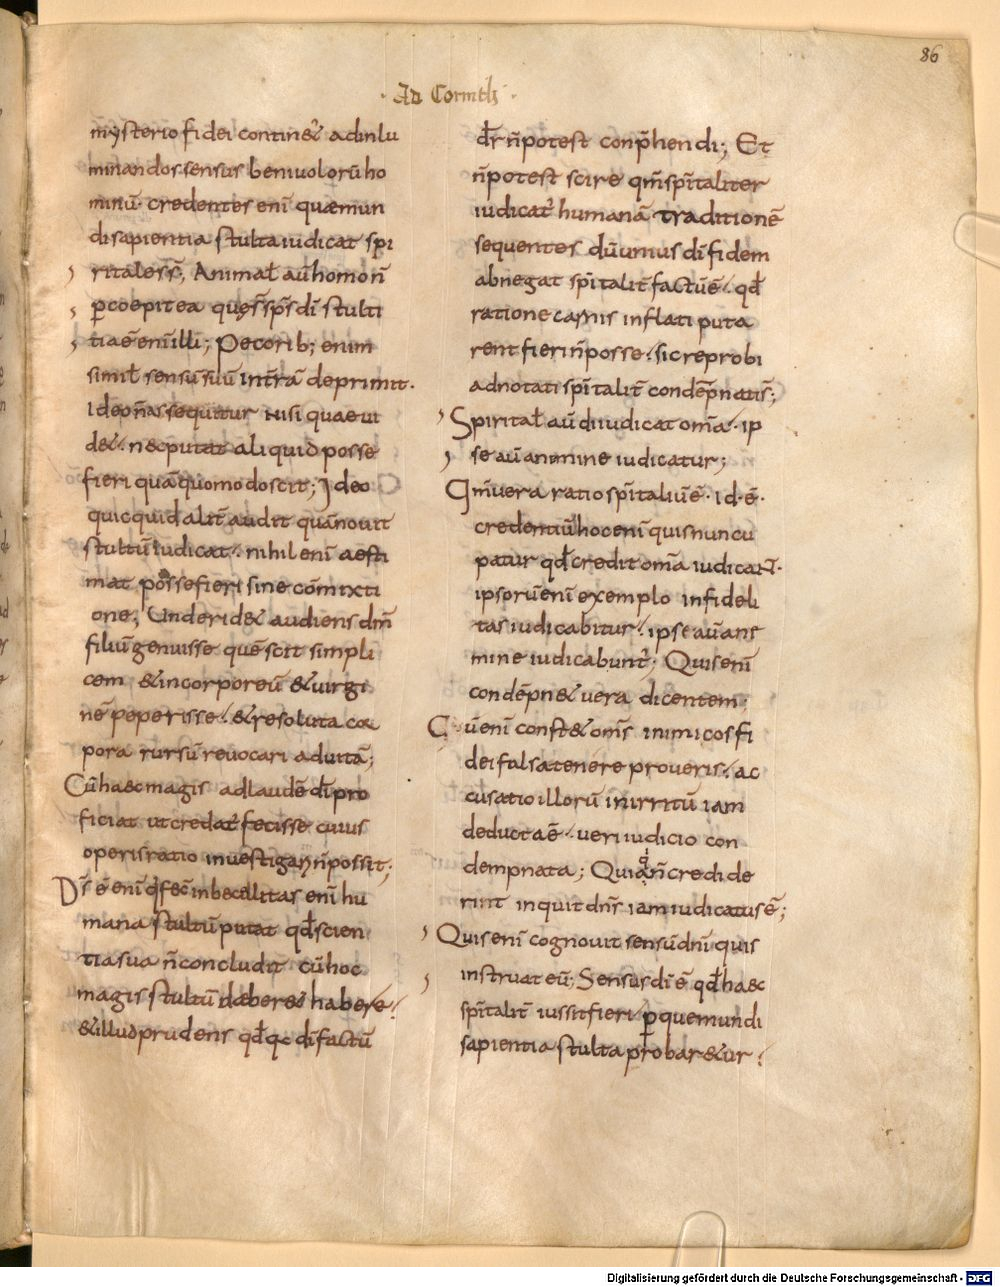 86
· Ad Corinth ·
mysterio fidei contin& adinlu
minandos sensus beniuolorū ho
minū· credentes enī quae mun
di sapientia stulta iudicat spi
ritales s̄; Animal̄ aū homo n̄
p̄coepit ea quę s̄ sp̄s dī stulti
tia ē enī illi; Pecorib; enim
simil̄ sensū suū int̄ra deprimit·
Ideo n̄ assequitur nisi quae ui
d&· nec putat aliquid posse
fieri quā quomodo scit; Ideo
quicquid alit̄ audit quā nouit
stultū iudicat· nihil enī aesti
mat posse fieri sine cōmixti
one; Unde rid& audiens dm̄
filiū genuisse quē scit simpli
cem & incorporeū & uirgi
nē peperisse· & resoluta cor
pora rursū reuocari ad uitā;
Cū haec magis ad laudē dī pro
ficiat ut credat̄ fecisse cuius
operis ratio inuestigari n̄ possit;
Ds̄ ē enī q̄ fec̄ inbecillitas enī hu
mana stultū putat qd̄ scien
tia sua n̄ concludit cū hoc
magis stultū deber& habere·
& illud prudens qd̄ qc dī factū
dr̄ n̄ potest conp̄hendi; Et
n̄ potest scire qm̄ sp̄italiter
iudicat̄ humanā traditionē
sequentes dū umus dī fidem
abnegat sp̄italit̄ factū ē· qd̄
ratione carnis inflati puta
rent fieri n̄ posse· sic reprobi
adnotati sp̄italit̄ condēpnatis̄;
Spirital̄ aū diiudicat om̄a· ip
se aū a nemine iudicatur;
Qm̄ uera ratio sp̄italiū ē· id· ē·
credentiū hoc enī quis nuncu
patur qd̄ credit om̄a iudicat·
ipsorū enī exemplo infideli
tas iudicabitur· ipse aū a ne
mine iudicabunt̄; Quis enī
condēpn& uera dicentem;
Cū enī const& om̄s inimicos fi
dei falsa tenere pro ueris· ac
cusatio illorū in irritū iam
deducta ē· ueri iudicio con
dempnata; Quia q̄ n̄ credide
rint inquit dn̄s iam iudicatus ē;
Quis enī cognouit sensū dnī quis
instruat eū; Sensus dī ē qd̄ haec
sp̄italit̄ iussit fieri p̄ que mundi
sapientia stulta probar&ur·
Digitalisierung gefördert durch die Deutsche Forschungsgemeinschaft - DFG